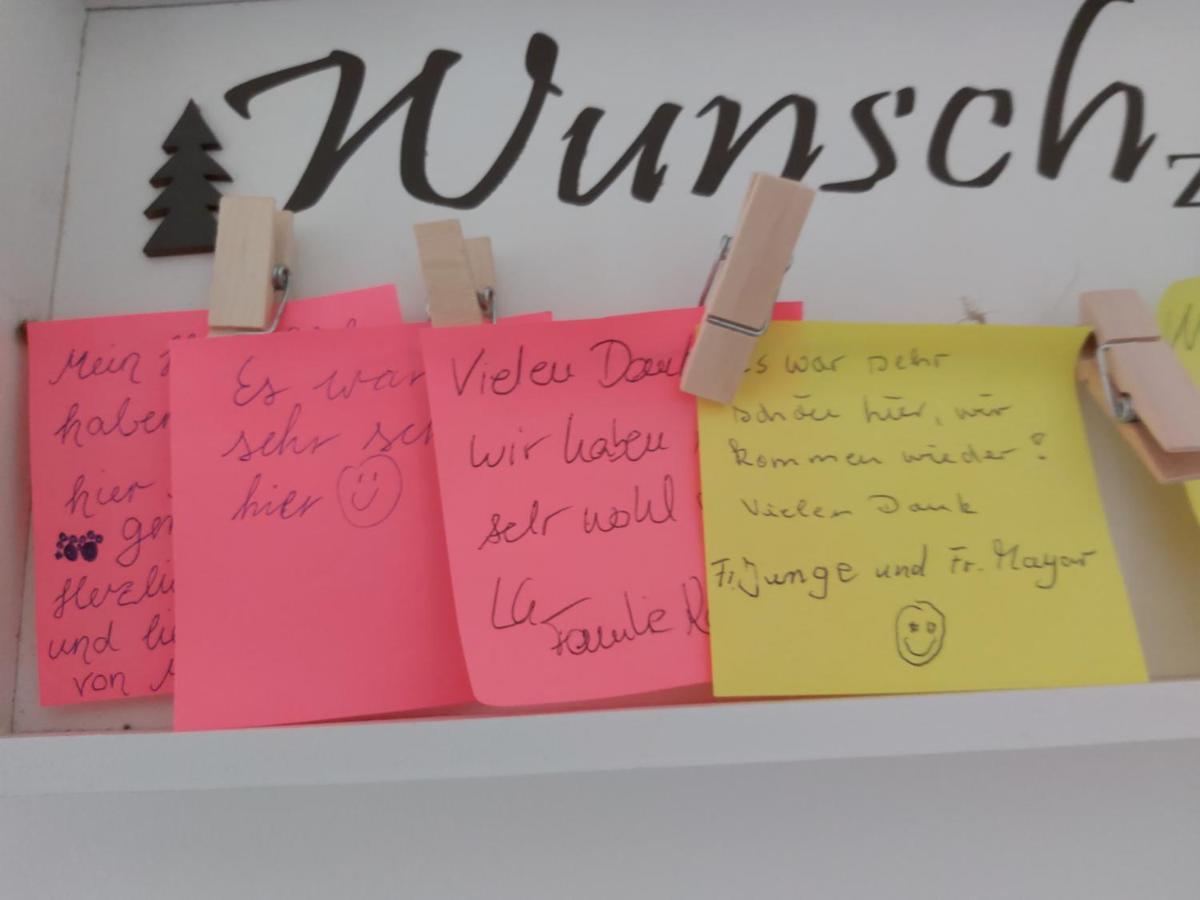 Wunsch
Mein
haben
hier
ge
Herzli
und li
von
Es war
sehr sc
hier
Vielen Dank
wir haben
sehr wohl
LG
Familie
Es war sehr
schön hier, wir
kommen wieder!
Vielen Dank
Fr. Junge und Fr. Mayar